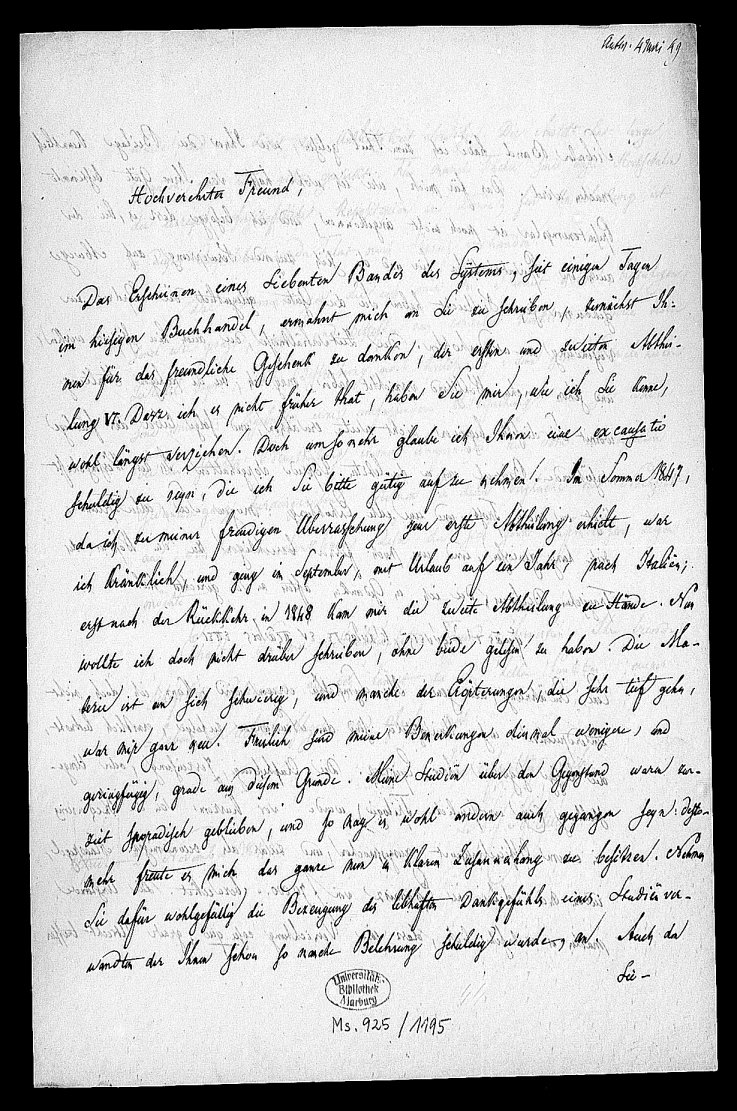 Antw. 4 Mai 49
Hochverehrter Freund,
Das Erscheinen eines siebenten Bandes des Systems, seit einigen Tagen
im hiesigen Buchhandel, ermahnt mich an Sie zu schreiben, zunächst Ih-
nen für das freundliche Geschenk zu danken, der ersten und zweiten Abthei-
lung VI. Dazz ich es nicht früher that, haben Sie mir, wie ich Sie kenne,
wohl längst verziehen. Doch umsomehr glaube ich Ihnen eine excusatio
schuldig zu seyn, die ich Sie bitte gütig aufzunehmen. Im Sommer 1847,
da ich zu meiner freudigen Uberraschung jene erste Abtheilung erhielt, war
ich kränklich, und geng in September, mit Urlaub auf ein Jahr, nach Italien;
erst nach der Rückkehr, in 1848 kam mir die zweite Abtheilung zu Hände. Nun
wollte ich doch nicht drüber schreiben, ohne beide gelesen zu haben. Die Ma-
terie ist an sich schwierig, und manche der Erörterungen, die sehr tief gehn,
war mir ganz neu. Freilich sind meine Bemerkungen diesmal wenigere, und
geringfügig, grade aus diesem Grunde. Meine Studiën über den Gegenstand waren zur-
zeit sporadisch geblieben, und so mag es wohl andern auch gegangen seyn: desto-
mehr freute es mich das ganze nun in klarem Zusammenhang zu besitzen. Nehmen
Sie dafür wohlgefällig die Bezeugung des lebhaften Dankgefühls eines Studiënver-
wandten der Ihnen schon so manche Belehrung schuldig wurde, an. Auch da
Sie-
Universitäts-
Bibliothek
Marburg
Ms. 925/1195